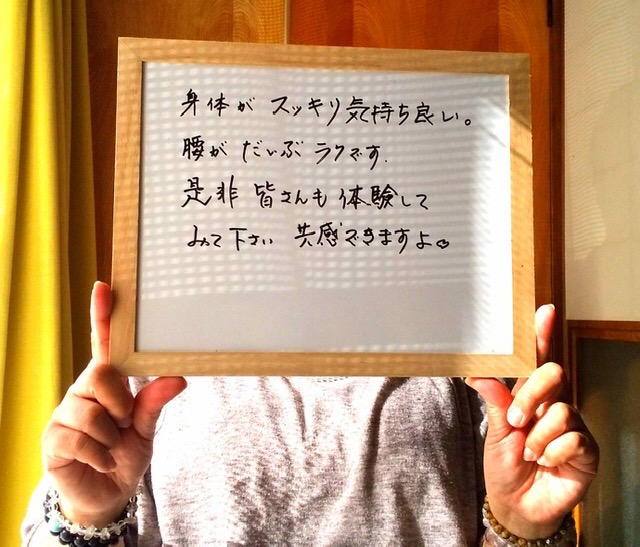 身体が スッキリ気持ち良い。
腰が だいぶ ラクです.
是非 皆さんも 体験して
みて下さい 共感できますよ